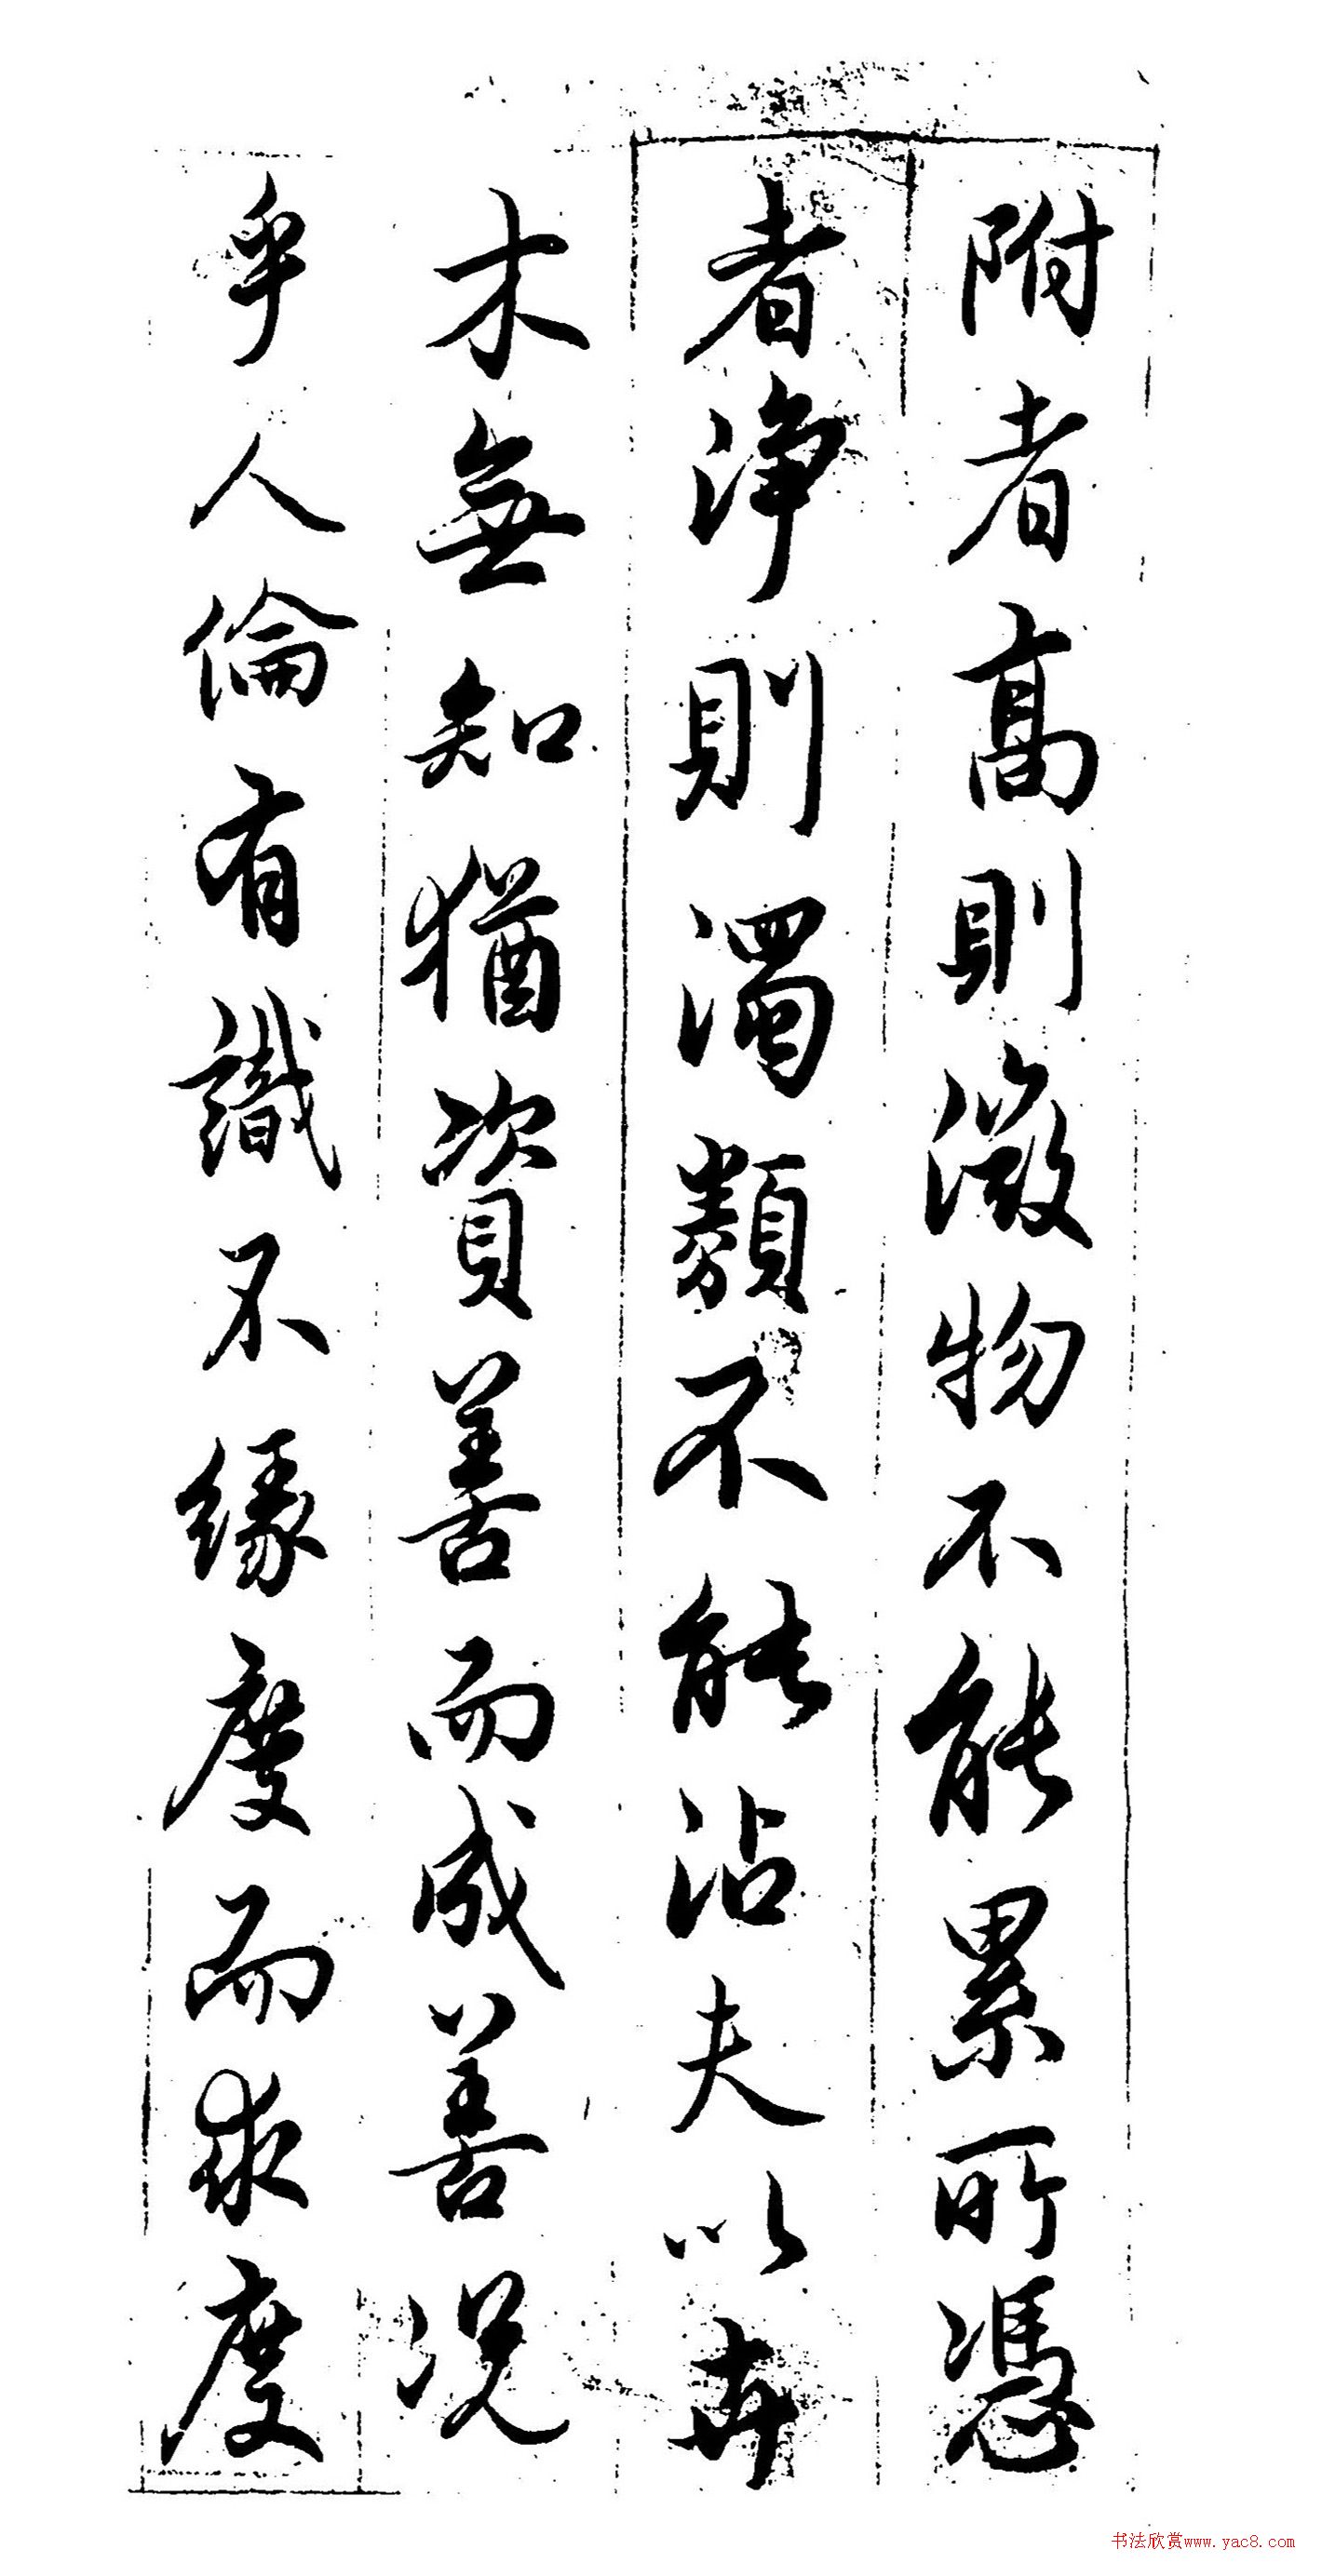 附者高則微物不能累所憑
者淨則濁類不能沾夫以卉
木無知猶資善而成善況
乎人倫有識不緣慶而求慶
书法欣赏www.yac8.com